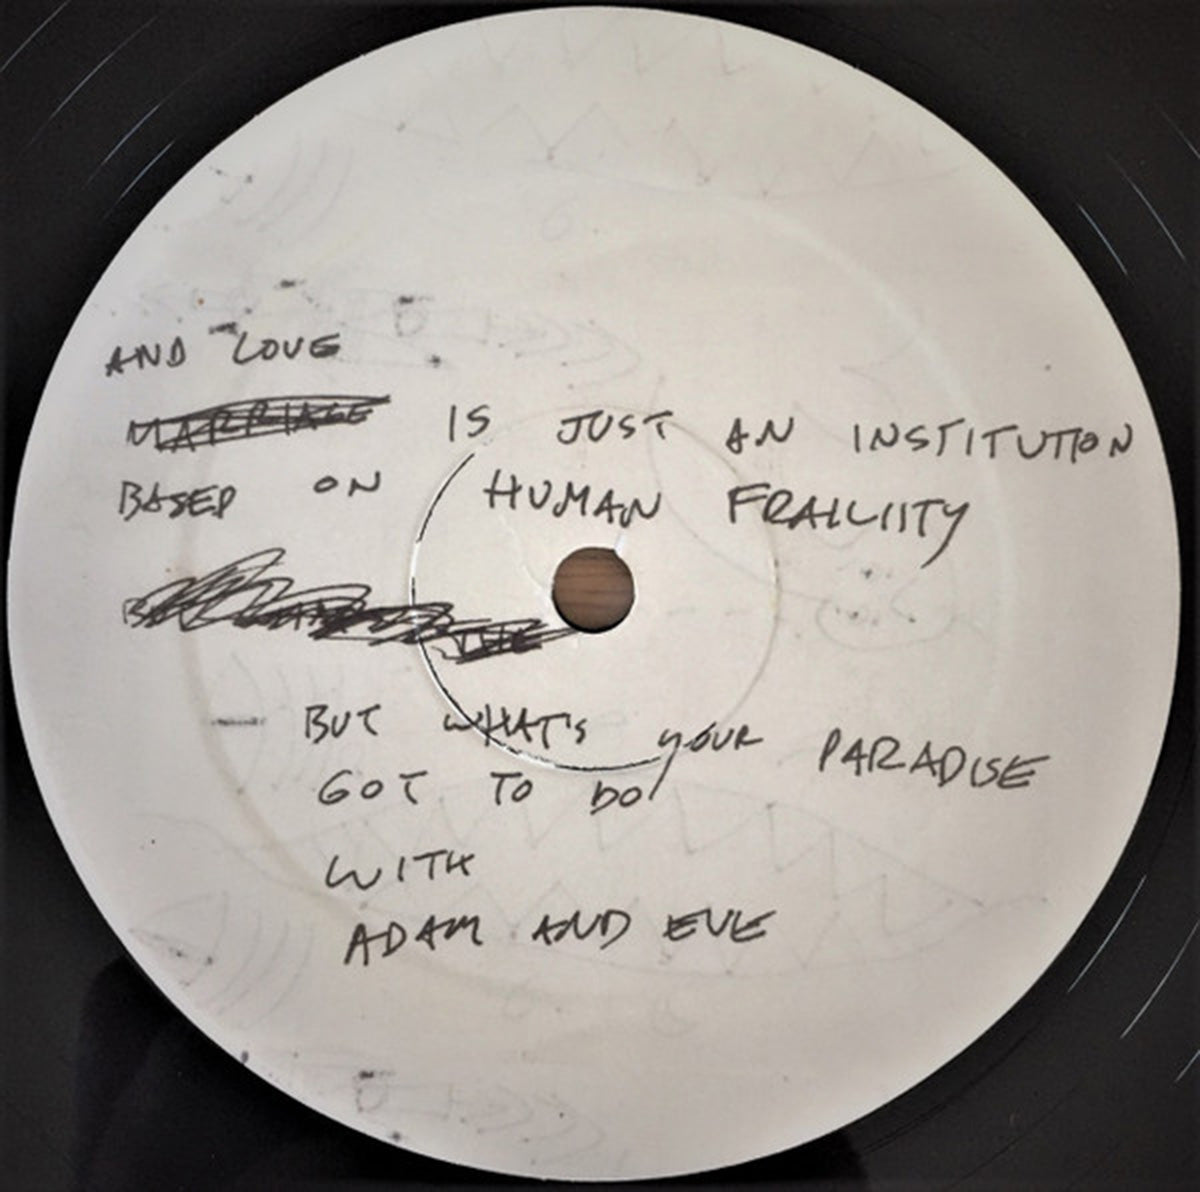 AND LOVE
MARRIAGE IS JUST AN INSTITUTION
BASED ON HUMAN FRAILIITY
THE
BUT WHAT'S YOUR PARADISE
GOT TO DO
WITH
ADAM AND EVE